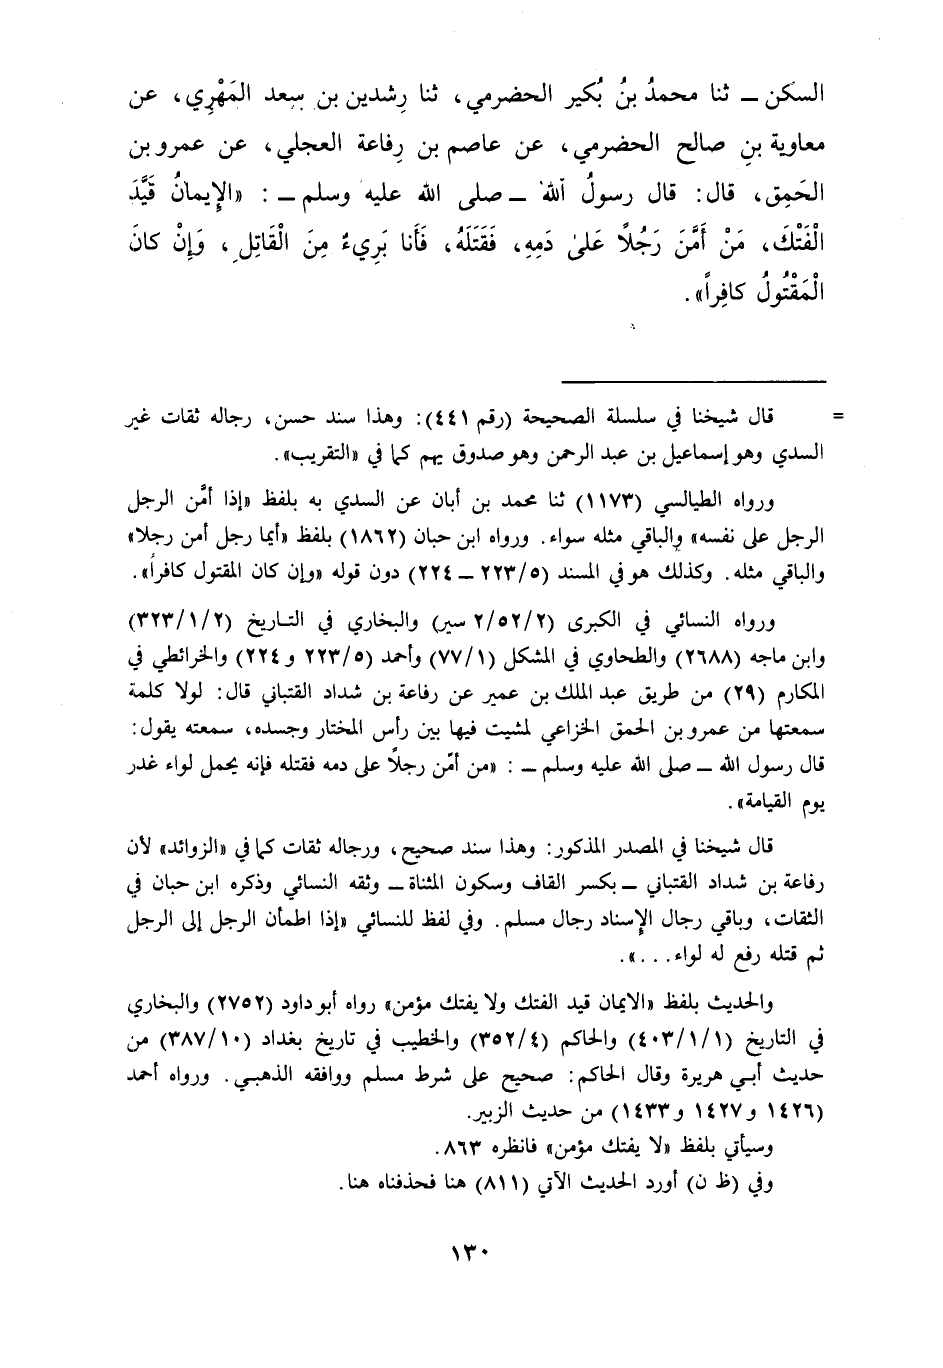 السكن ــ ثنا محمدُ بنُ بُكير الحضرمي، ثنا رِشدين بن سِعد المَهْرِي، عن
معاوية بنِ صالح الحضرمي، عن عاصم بن رِفاعة العجلي، عن عمرو بن
الحَمِق، قال: قال رسولُ الله ــ صلى الله عليه وسلم ــ : «الإِيمانُ قَيَّدَ
الْفَتْكَ، مَنْ أَمَّنَ رَجُلاً عَلىٰ دَمِهِ، فَقَتَلَهُ، فَأَنا بَرِيءٌ مِنَ الْقَاتِلِ، وَإِنْ كانَ
الْمَقْتُولُ كافِراً».
= قال شيخنا في سلسلة الصحيحة (رقم ٤٤١): وهذا سند حسن، رجاله ثقات غير
السدي وهو إسماعيل بن عبد الرحمن وهو صدوق يهم كما في «التقريب».
ورواه الطيالسي (١١٧٣) ثنا محمد بن أبان عن السدي به بلفظ «إذا أمَّن الرجل
الرجل على نفسه» والباقي مثله سواء. ورواه ابن حبان (١٨٦٢) بلفظ «أيما رجل أمن رجلا»
والباقي مثله. وكذلك هو في المسند (٢٢٣/٥ ــ ٢٢٤) دون قوله «وإن كان المقتول كافراً».
ورواه النسائي في الكبرى (٢/٥٢/٢ سير) والبخاري في التاريخ (٣٢٣/١/٢)
وابن ماجه (٢٦٨٨) والطحاوي في المشكل (٧٧/١) وأحمد (٢٢٣/٥ و ٢٢٤) والخرائطي في
المكارم (٢٩) من طريق عبد الملك بن عمير عن رفاعة بن شداد القتباني قال: لولا كلمة
سمعتها من عمرو بن الحمق الخزاعي لمشيت فيها بين رأس المختار وجسده، سمعته يقول:
قال رسول الله ــ صلى الله عليه وسلم ــ : «من أمّن رجلاً على دمه فقتله فإنه يحمل لواء غدر
يوم القيامة».
قال شيخنا في المصدر المذكور: وهذا سند صحيح، ورجاله ثقات كما في «الزوائد» لأن
رفاعة بن شداد القتباني ــ بكسر القاف وسكون المثناة ــ وثقه النسائي وذكره ابن حبان في
الثقات، وباقي رجال الإسناد رجال مسلم. وفي لفظ للنسائي «إذا اطمأن الرجل إلى الرجل
ثم قتله رفع له لواء...».
والحديث بلفظ «الايمان قيد الفتك ولا يفتك مؤمن» رواه أبو داود (٢٧٥٢) والبخاري
في التاريخ (٤٠٣/١/١) والحاكم (٣٥٢/٤) والخطيب في تاريخ بغداد (٣٨٧/١٠) من
حديث أبي هريرة وقال الحاكم: صحيح على شرط مسلم ووافقه الذهبي. ورواه أحمد
(١٤٢٦ و ١٤٢٧ و ١٤٣٣) من حديث الزبير.
وسيأتي بلفظ «لا يفتك مؤمن» فانظره ٨٦٣.
وفي (ظ ن) أورد الحديث الآتي (٨١١) هنا فحذفناه هنا.
١٣٠